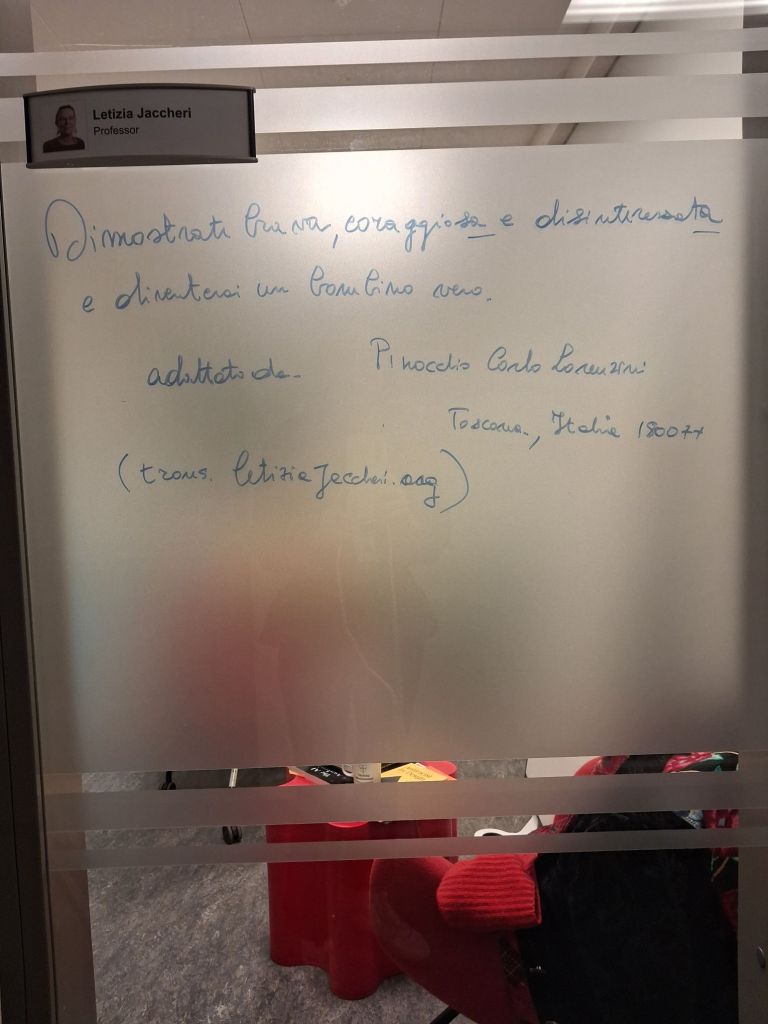 Letizia Jaccheri
Professor
Dimostrati brava, coraggiosa e disinteressata
e diventerai un bambino vero.
adattato da Pinocchio Carlo Lorenzini
Toscana, Italia
(trans. letiziaJaccheri.org)